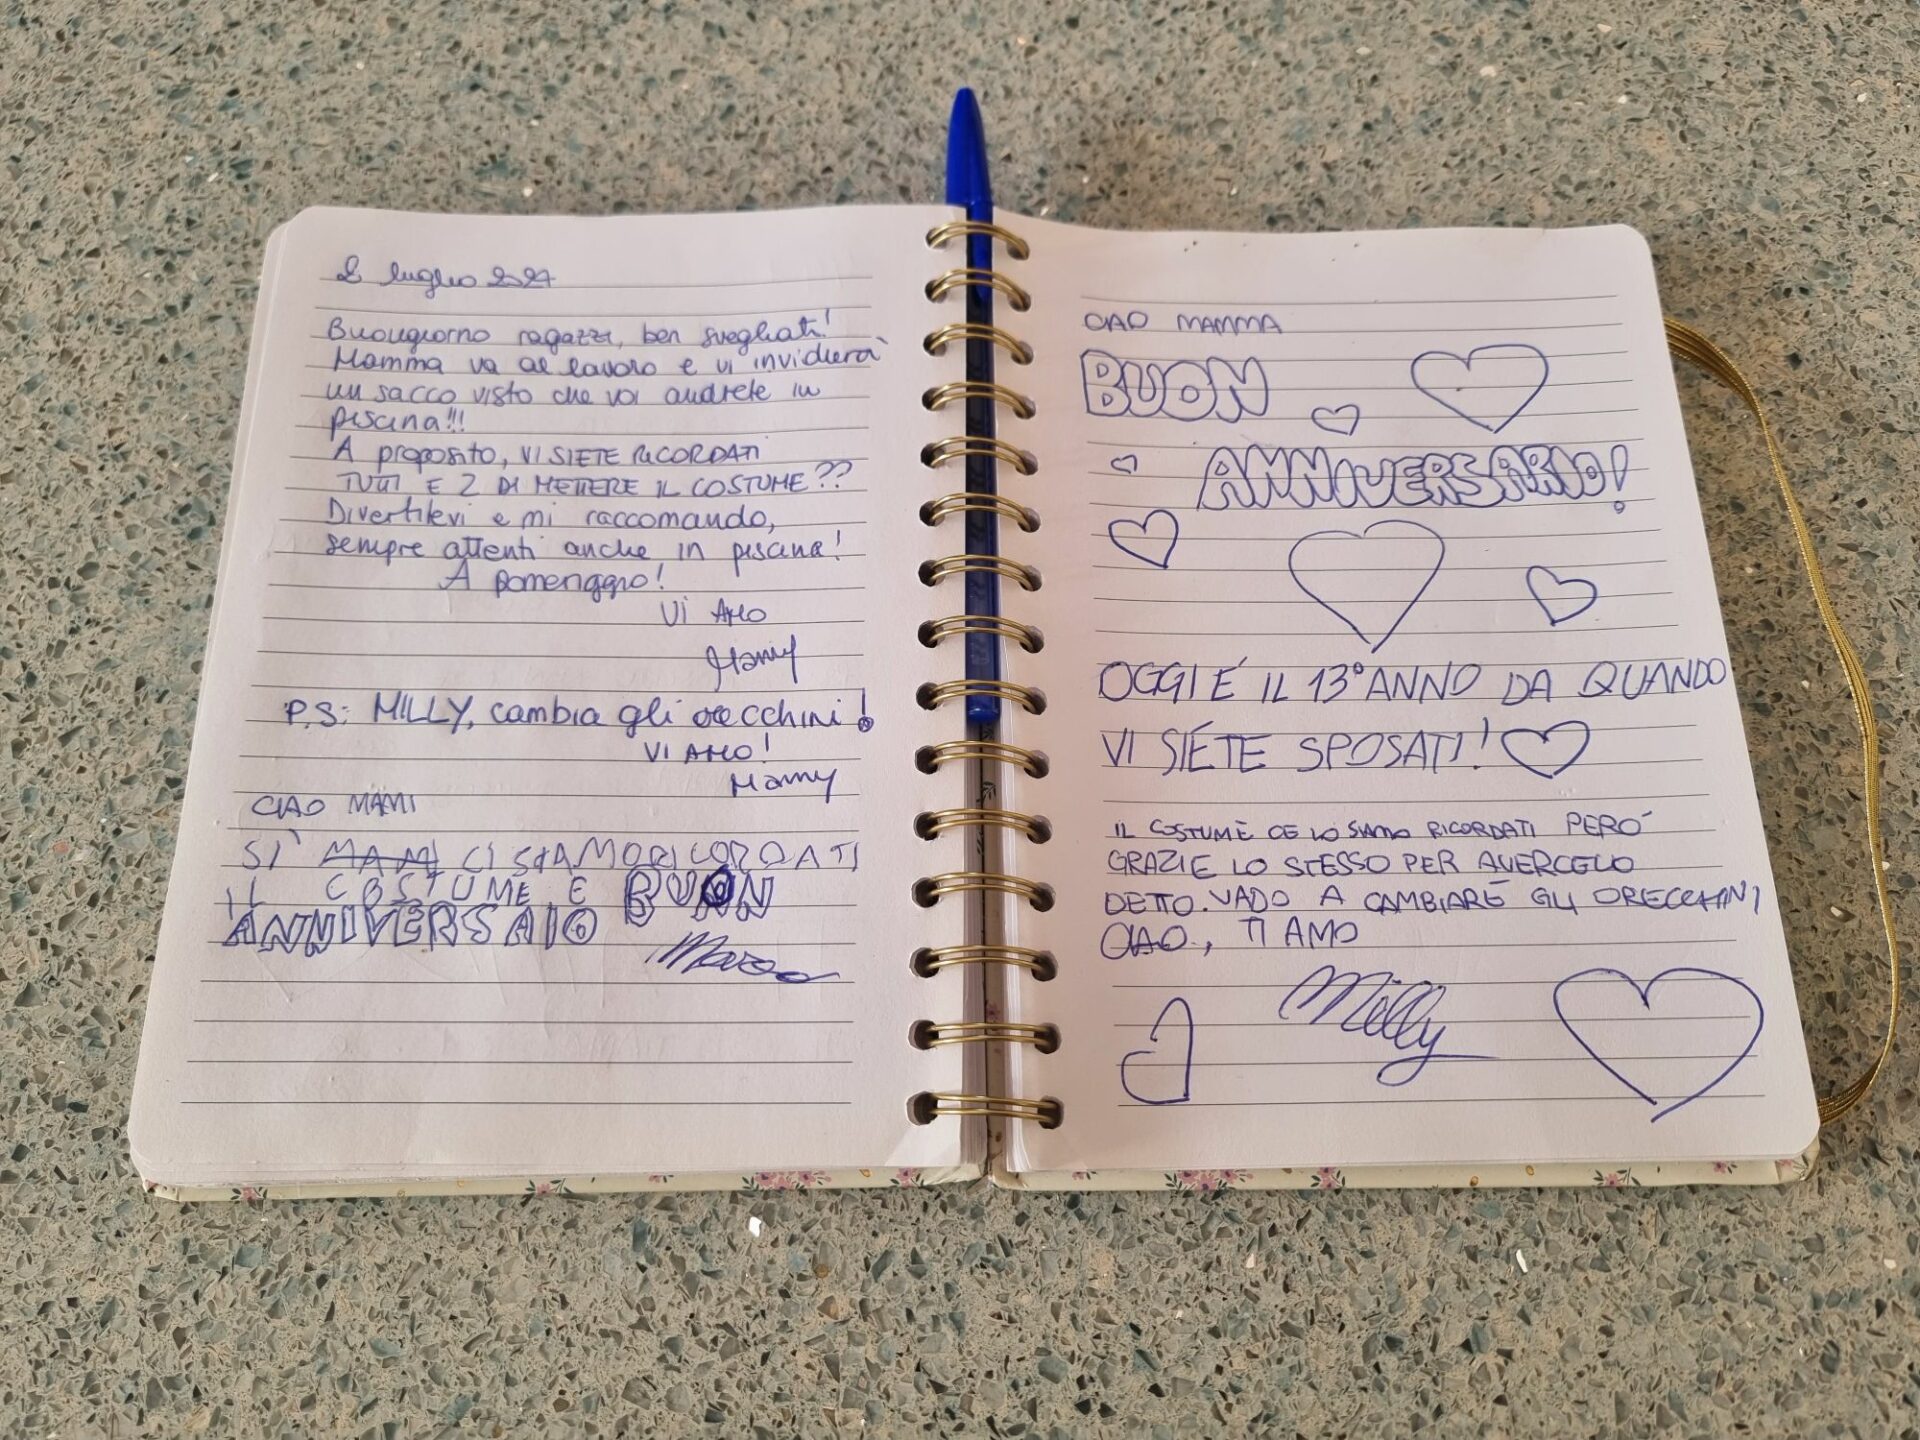 2 luglio 2021
Buongiorno ragazzi, ben svegliati!
Mamma va al lavoro e vi invidierà
un sacco visto che voi andrete in
piscina!!!
A proposito, VI SIETE RICORDATI
TUTTI E 2 DI METTERE IL COSTUME??
Divertitevi e mi raccomando,
sempre attenti anche in piscina!
A pomeriggio!
Vi AMO
Mamy
P.S: MILLY, cambia gli orecchini!
VI AMO!
Mamy
CIAO MAMI
SI' MAMI CI SIAMO RICORDATI
IL COSTUME E BUON
ANNIVERSAIO
CIAO MAMMA
BUON
ANNIVERSARIO!
OGGI É IL 13° ANNO DA QUANDO
VI SIETE SPOSATI!
IL COSTUME CE LO SIAMO RICORDATI PERO'
GRAZIE LO STESSO PER AVERCELO
DETTO. VADO A CAMBIARE GLI ORECCHINI
CIAO, TI AMO
Milly